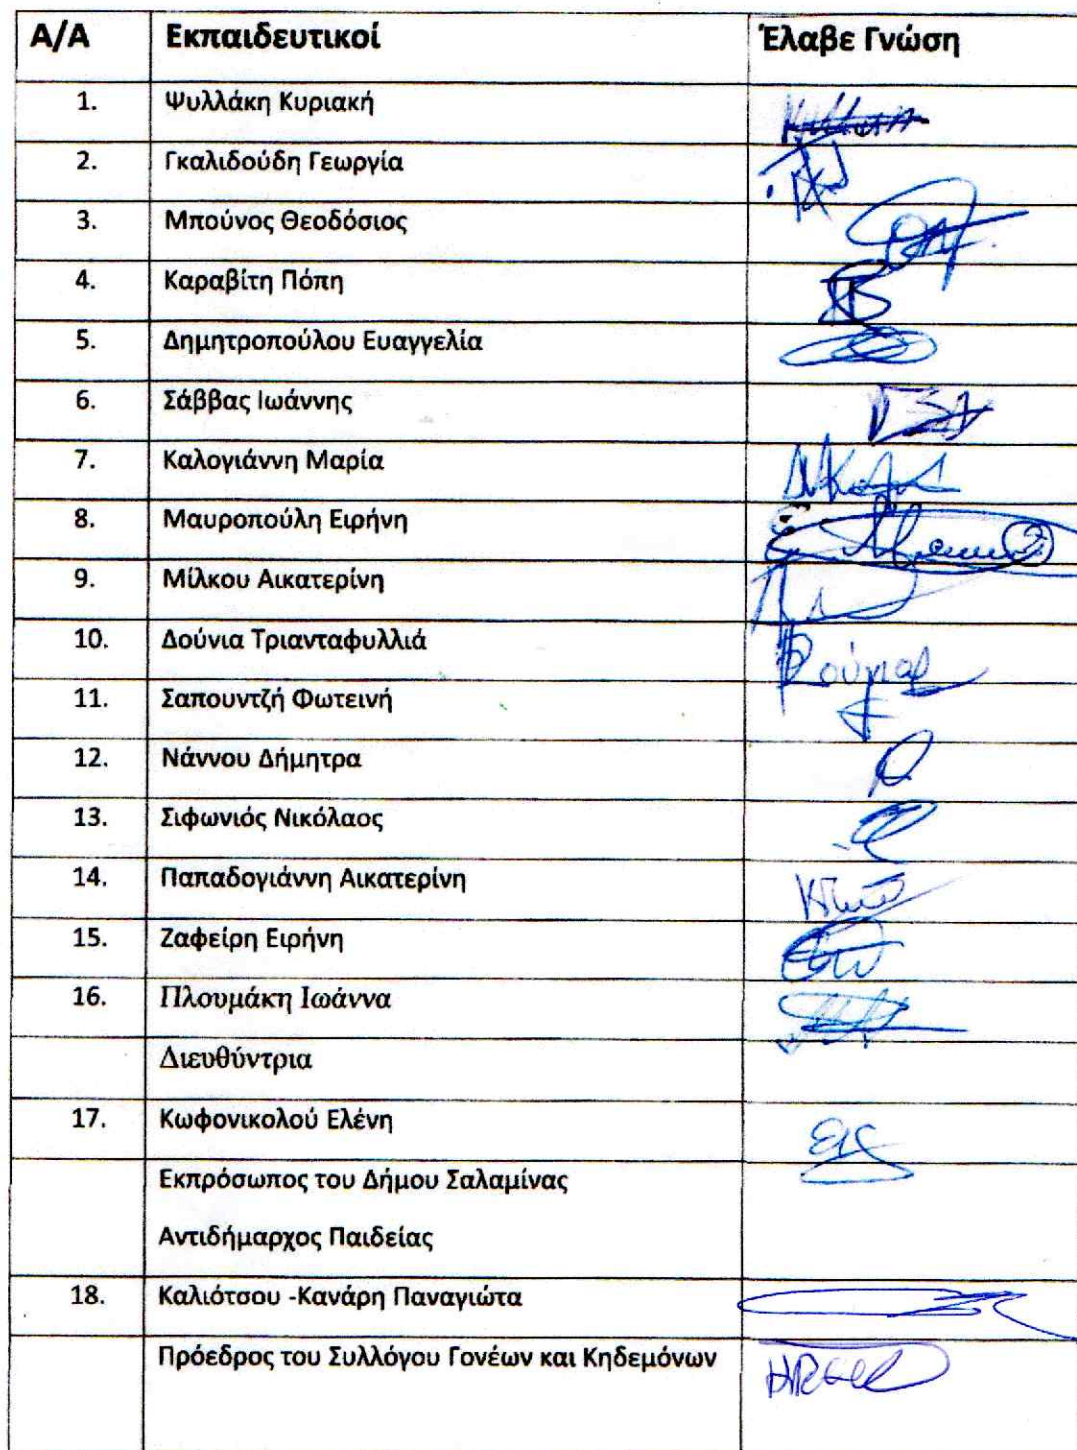 Α/Α Εκπαιδευτικοί Έλαβε Γνώση
1. Ψυλλάκη Κυριακή
2. Γκαλιδούδη Γεωργία
3. Μπούνος Θεοδόσιος
4. Καραβίτη Πόπη
5. Δημητροπούλου Ευαγγελία
6. Σάββας Ιωάννης
7. Καλογιάννη Μαρία
8. Μαυροπούλη Ειρήνη
9. Μίλκου Αικατερίνη
10. Δούνια Τριανταφυλλιά
11. Σαπουντζή Φωτεινή
12. Νάννου Δήμητρα
13. Σιφωνιός Νικόλαος
14. Παπαδογιάννη Αικατερίνη
15. Ζαφείρη Ειρήνη
16. Πλουμάκη Ιωάννα
Διευθύντρια
17. Κωφονικολού Ελένη
Εκπρόσωπος του Δήμου Σαλαμίνας
Αντιδήμαρχος Παιδείας
18. Καλιότσου -Κανάρη Παναγιώτα
Πρόεδρος του Συλλόγου Γονέων και Κηδεμόνων